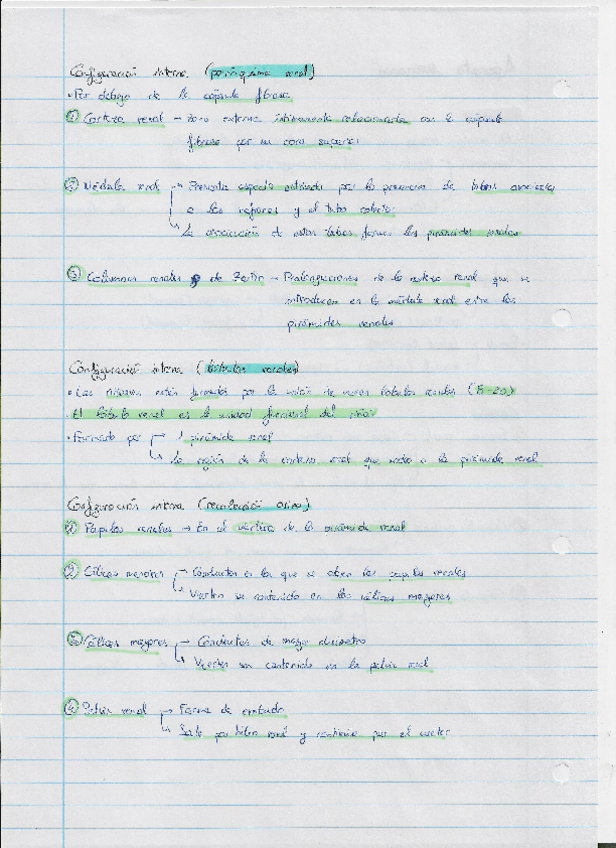 Configuración interna (parénquima renal)
• Por debajo de la cápsula fibrosa
① Corteza renal → zona externa íntimamente relacionada con la cápsula
fibrosa por su cara superior
② Médula renal → Presenta aspecto estriado por la presencia de tubos asociados
a las nefronas y al tubo colector
→ La asociación de estos tubos forma las pirámides renales
③ Columnas renales de Bertin → Prolongaciones de la corteza renal que se
introducen en la médula renal entre las
pirámides renales
Configuración interna (lóbulos renales)
• Los riñones están formados por la unión de varios lóbulos renales (15-20)
• El lóbulo renal es la unidad funcional del riñón
• Formado por → 1 pirámide renal
→ La región de la corteza renal que rodea a la pirámide renal
Configuración interna (recolección orina)
① Papilas renales → En el vértice de la pirámide renal
② Cálices menores → Conductos en los que se abren las papilas renales
→ Vierten su contenido en los cálices mayores
③ Cálices mayores → Conductos de mayor diámetro
→ Vierten su contenido en la pelvis renal
④ Pelvis renal → Forma de embudo
→ Sale por hilio renal y continúa por el uréter